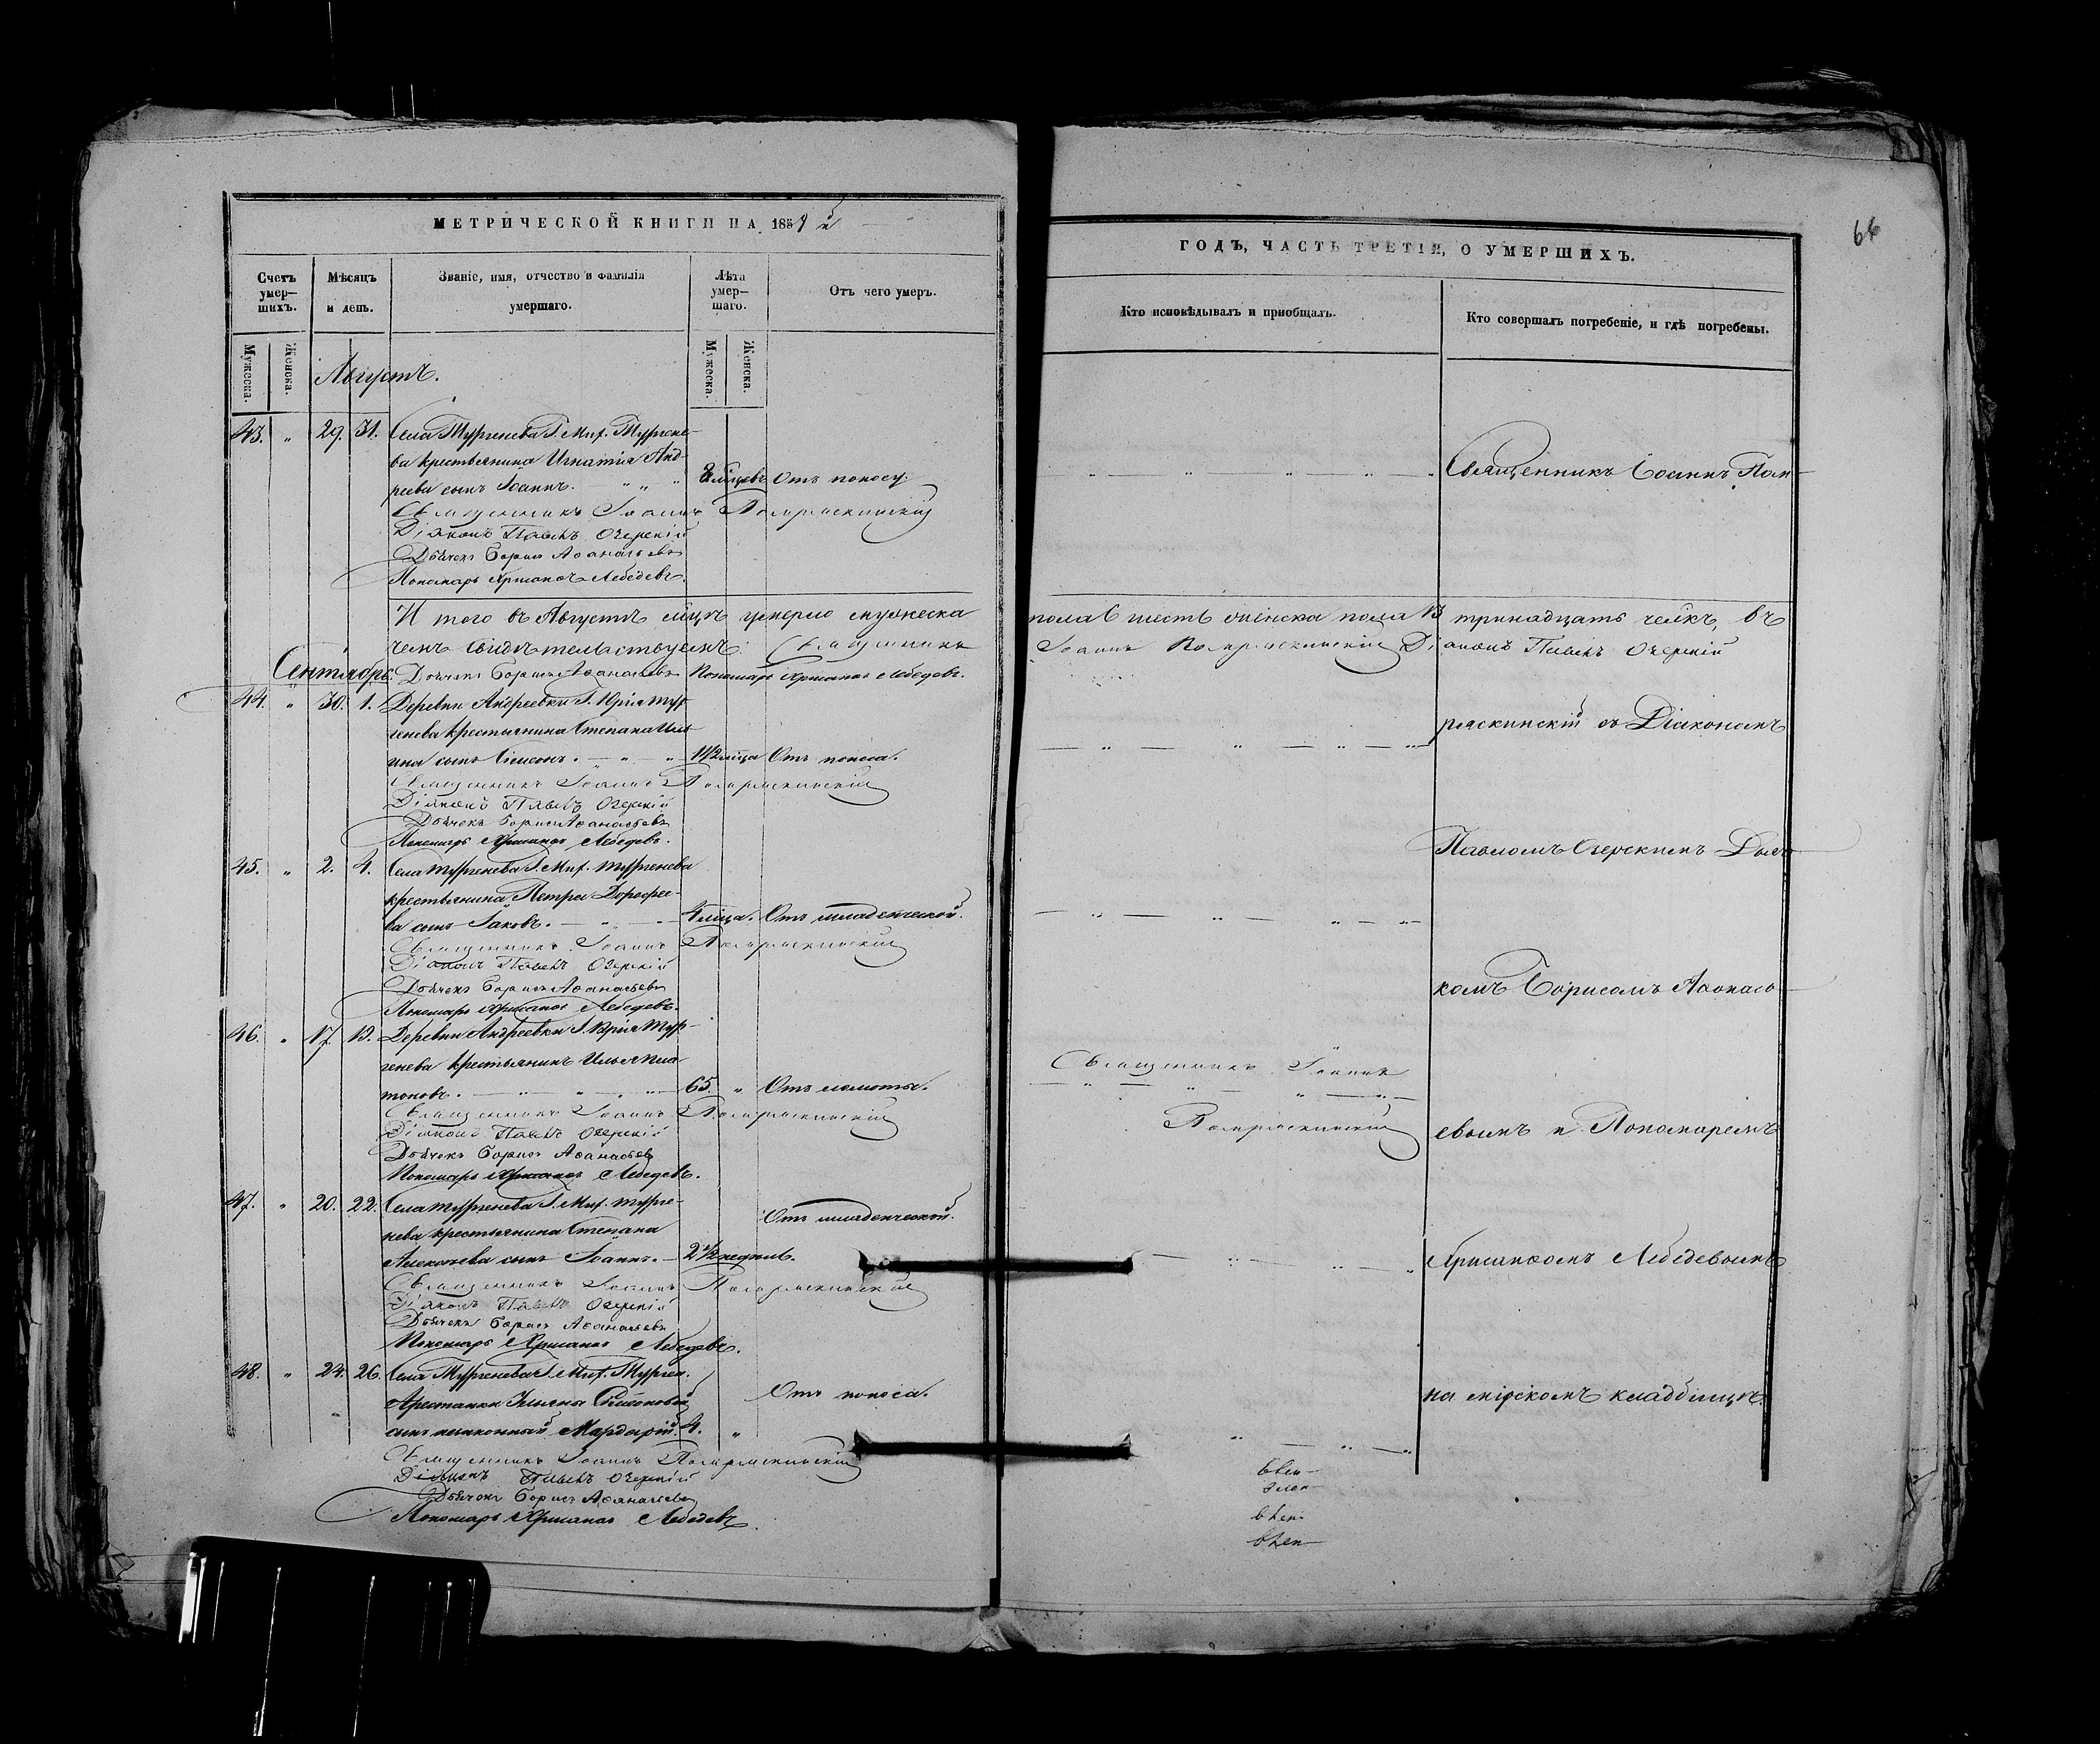 МЕТРИЧЕСКОЙ КНИГИ НА 1858й
Счетъ умер-шихъ.
Мѣсяцъ и день.
Званіе, имя, отчество и фамилія умершаго.
Лѣта умер-шаго.
Отъ чего умеръ.
Мужеска.
Женска.
Мужеска.
Женска.
Августъ.
43. " 29. 31. Села Тургенева Г. Мих. Тургене-
ва крестьянина Игнатія Анд-
реева сынъ Іоаннъ. " " " 8 мѣсцовъ Отъ поносу.
Священникъ Іоаннъ
Діаконъ Павелъ Озерскій
Дьячекъ Борисъ Аѳанасьевъ
Пономарь Хрисанѳъ Лебедевъ.
И того въ Августѣ мѣцѣ умерло мужеска
чемъ свидѣтельствуемъ: Священникъ
Сентябрь. Дьячекъ Борисъ Аѳанасьевъ Пономарь Хрисанѳъ Лебедевъ.
44. " 30. 1. Деревни Андреевки Г. Юрія Тур-
генева крестьянина Степана Иль-
ина сынъ Сѵмеонъ. — " — " 1 1/2 мѣца Отъ поноса.
Священникъ Іоаннъ
Діаконъ Павелъ Озерскій
Дьячекъ Борисъ Аѳанасьевъ
Пономарь Хрисанѳъ Лебедевъ.
45. " 2. 4. Села Тургенева Г. Мих. Тургенева
крестьянина Петра Дороѳее-
ва сынъ Іаковъ. — " — " 4 мѣца. Отъ младенческой.
Священникъ Іоаннъ
Діаконъ Павелъ Озерскій
Дьячекъ Борисъ Аѳанасьевъ
Пономарь Хрисанѳъ Лебедевъ.
46. " 17. 19. Деревни Андреевки Г. Юрія Тур-
генева крестьянинъ Илья Пла-
тоновъ. — " — " — " 65. " Отъ ломоты.
Священникъ Іоаннъ
Діаконъ Павелъ Озерскій
Дьячекъ Борисъ Аѳанасьевъ
Пономарь Хрисанѳъ Лебедевъ.
47. " 20. 22. Села Тургенева Г. Мих. Турге-
нева крестьянина Степана Отъ младенческой.
Алексѣева сынъ Іоаннъ. — 2 1/2 недѣли.
Священникъ Іоаннъ
Діаконъ Павелъ Озерскій
Дьячекъ Борисъ Аѳанасьевъ
Пономарь Хрисанѳъ Лебедевъ.
48. " 24. 26. Села Тургенева Г. Мих. Турген.
Отъ поноса.
сынъ незаконный Мардарій. 4. "
Священникъ Іоаннъ
Діаконъ Павелъ Озерскій
Дьячекъ Борисъ Аѳанасьевъ
Пономарь Хрисанѳъ Лебедевъ.
66
ГОДЪ, ЧАСТЬ ТРЕТІЯ, О УМЕРШИХЪ.
Кто исповѣдывалъ и пріобщалъ.
Кто совершалъ погребеніе, и гдѣ погребены.
Священникъ Іоаннъ
пола 6 шесть женска пола 13 тринадцать челкъ, въ
Іоаннъ Діаконъ Павелъ Озерскій
съ Діакономъ
Павломъ Озерскимъ Дьяч-
комъ Борисомъ Аѳанась-
Священникъ Іоаннъ
евымъ и Пономаремъ
Хрисанѳомъ Лебедевымъ
на мірскомъ кладбищѣ.